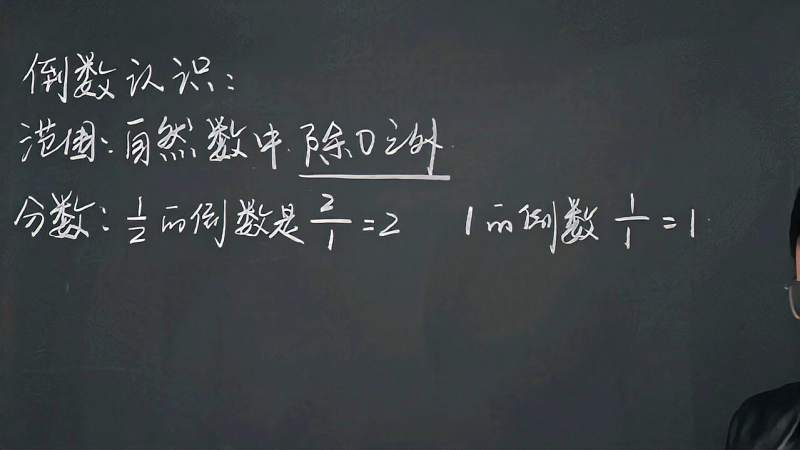 倒数认识:
范围:自然数中 除0之外.
分数: 1/2 的倒数是 2/1 = 2 1的倒数 1/1 = 1